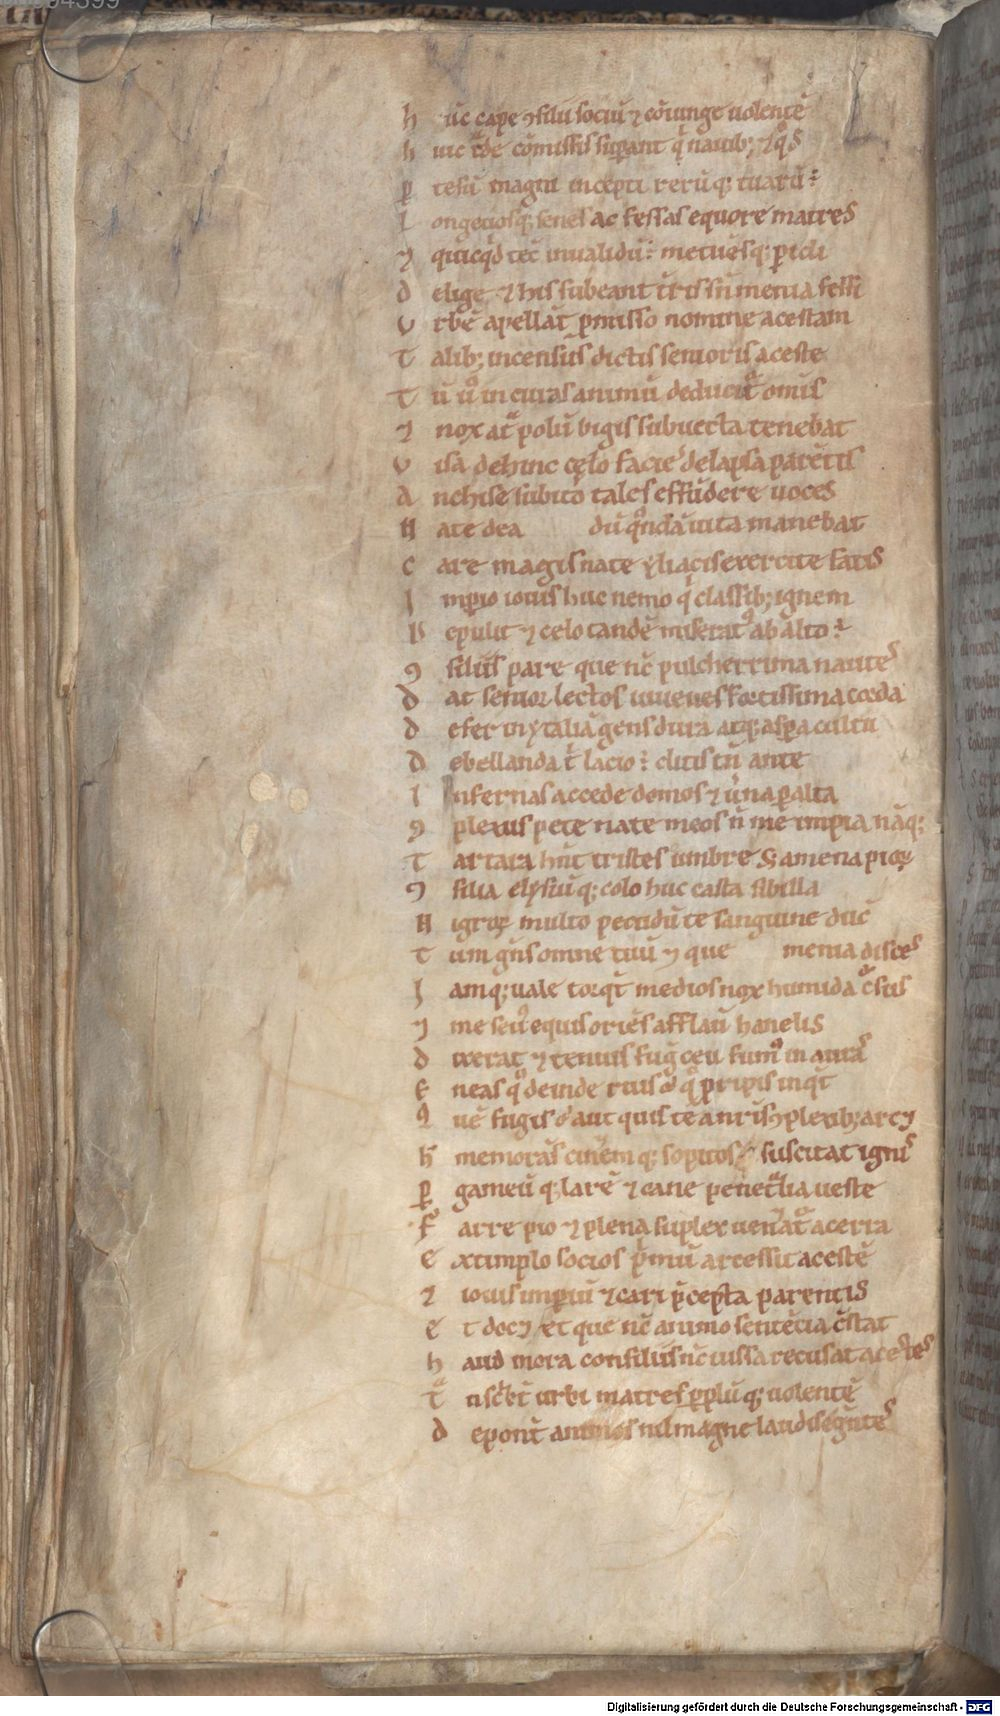 h ūc cape ꝯsiliis sociū ⁊ cōiunge uolentē
h uic t̄de cōmissis suꝑant q̇ nauib; ⁊ q̊s
ꝑ tesū magni incepti rerūq; tuarū:
l ongeuosq; senes ac fessas equore matres
⁊ quicq̇d tec̄ inualidū: metuēsq; ꝑicli
d elige ⁊ his subeant t̄ris sn̄ menia fessi
v rbē apellāt ꝑmisso nomine acestam
T alib; incensus dictis senioris aceste
T ū u̅ in curas animū deducit̄ omīs
⁊ nox at̄ polū bigis subuecta tenebat
v isa dehinc cęlo facies delapsa parētis
a nchise subito tales effūdere uoces
N ate dea dū q̊ndā uita manebat
c are magis nate yliacis exercite fatis
I mꝑio iouis huc uenio q̇ classib; ignem
D epulit ⁊ celo tandē miserat᷒ ab alto:
ꝯ siliis pare que nc̄ pulcherrima nautes
d at senior lectos iuuenes fortissima corda
d efer in ytaliā gens dura atq; asꝑa cultu
D ebellanda t̄ lacio: ditis tn̄ ante
I nfernas accede domos ⁊ au̅na ꝑ alta
ꝯ plexus pete nate meos n̄ me impia nāq;
T artara hn̄t tristes umbre s; amena pioꝝ
ꝯ silia elysiūq; colo huc casta sibilla
N igroꝝ multo pecudū te sanguine duc̄
T um gn̄s omne tuū ⁊ que menia disces
I amq; uale torq̄t medios nox humida c̄sus
⁊ me seu̅ equis oriēs afflau̅ hanelis
d ixerat ⁊ tenuis fug̅ ceu fum᷒ in auras
E neas q̊ deinde ruis q̊ ꝓripis inq̄t
q uē fugis aut quis te nr̄is ꝯplexib; arc⁊
h memorās cinēm q; sopitos suscitat ignis
ꝑ gameū q; larē ⁊ cane penet̄lia ueste
F arre pio ⁊ plena suplex uen̄at̄ acerra
e xtimplo socios p̄mū arcessit acestē
⁊ iouis imꝑiū ⁊ cari p̄cepta parentis
e t doc⁊ et que nc̄ animo sentēcia c̄stat
h aud mora consiliis nc̄ iussa recusat acestes
T̄ nscb̄t urbi matres ppl̄ū q; uolentē
d epont̄ animos nil magne laudis egn̄tes
Digitalisierung gefördert durch die Deutsche Forschungsgemeinschaft - DFG